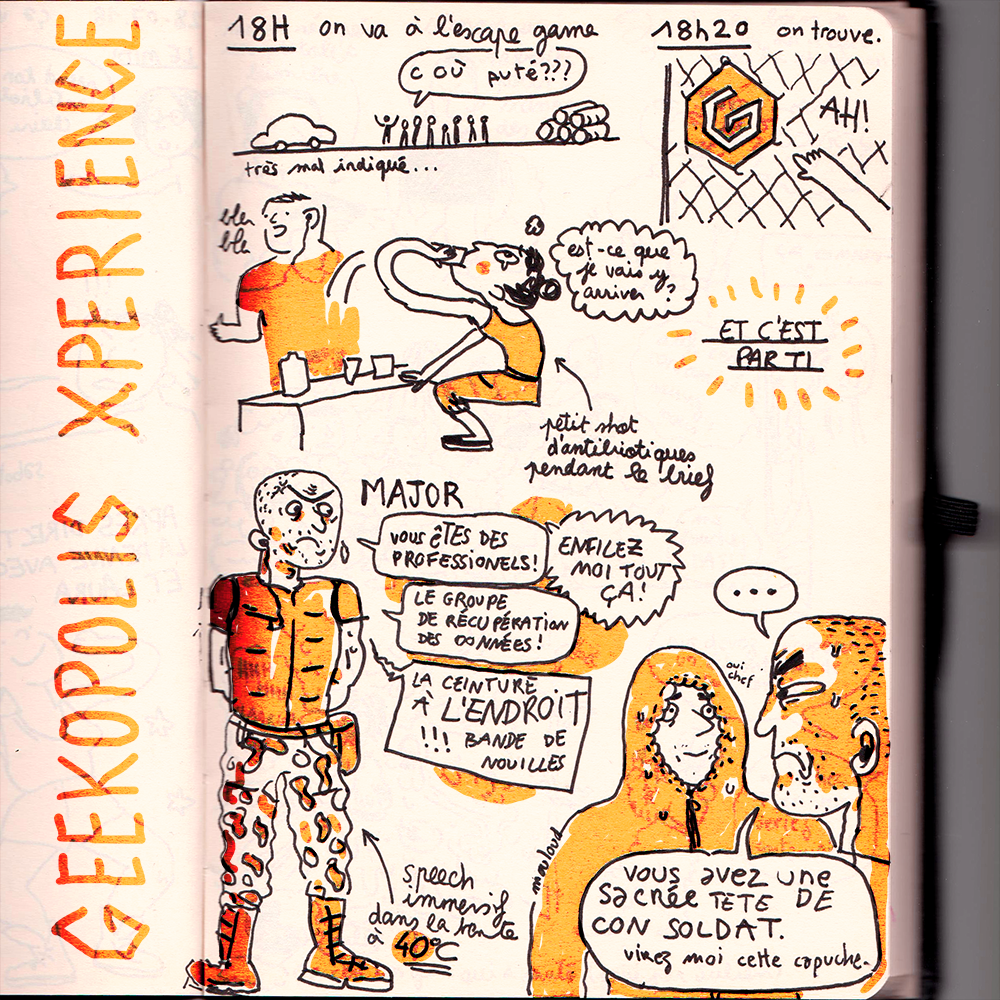 GEEKOPOLIS XPERIENCE
18H on va à l'escape game
C OÙ puté???
très mal indiqué...
18h20 on trouve.
G
AH!
bla
bla
est-ce que
je vais y
arriver ?
ET C'EST
PARTI
petit shot
d'antibiotiques
pendant le brief
MAJOR
VOUS ÊTES DES
PROFESSIONELS!
ENFILEZ
MOI TOUT
ÇA!
LE GROUPE
DE RÉCUPÉRATION
DES DONNÉES!
LA CEINTURE
À L'ENDROIT
!!! BANDE DE
NOUILLES
speech
immersif
dans la tente
à 40°C
...
oui
chef
mouloud
VOUS AVEZ UNE
SACRÉE TETE DE
CON SOLDAT.
virez moi cette capuche.